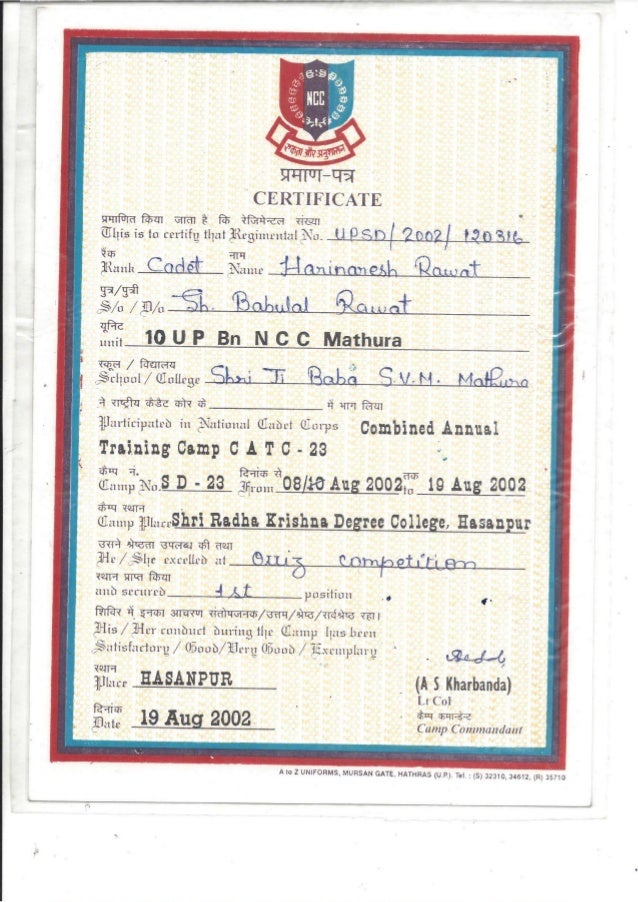 NCC
एकता और अनुशासन
प्रमाण-पत्र
CERTIFICATE
प्रमाणित किया जाता है कि रेजिमेन्टल संख्या
This is to certify that Regimental No. UPSD/2002/120316
रैंक नाम
Rank Cadet Name Harinaresh Rawat
पुत्र/पुत्री
S/o / D/o Sh. Babulal Rawat
यूनिट
unit 10 U P Bn N C C Mathura
स्कूल / विद्यालय
School / College Shri Ji Baba S.V.M. Mathura
ने राष्ट्रीय कैडैट कोर के में भाग लिया
Participated in National Cadet Corps Combined Annual
Training Camp C A T C - 23
कैम्प नं. दिनांक से तक
Camp No. S D - 23 From 08/10 Aug 2002 to 19 Aug 2002
कैम्प स्थान
Camp Place Shri Radha Krishna Degree College, Hasanpur
उसने श्रेष्ठता उपलब्ध की तथा
He / She excelled at Qrriz competition
स्थान प्राप्त किया
and secured 1st position
शिविर में इनका आचरण संतोषजनक/उत्तम/श्रेष्ठ/सर्वश्रेष्ठ रहा।
His / Her conduct during the Camp has been
Satisfactory / Good/Very Good / Exemplary
स्थान
Place HASANPUR
(A S Kharbanda)
Lt Col
दिनांक
कैम्प कमान्डेन्ट
Date 19 Aug 2002
Camp Commandant
A to Z UNIFORMS, MURSAN GATE, HATHRAS (U.P.). Tel. : (S) 32310, 34612, (R) 35710